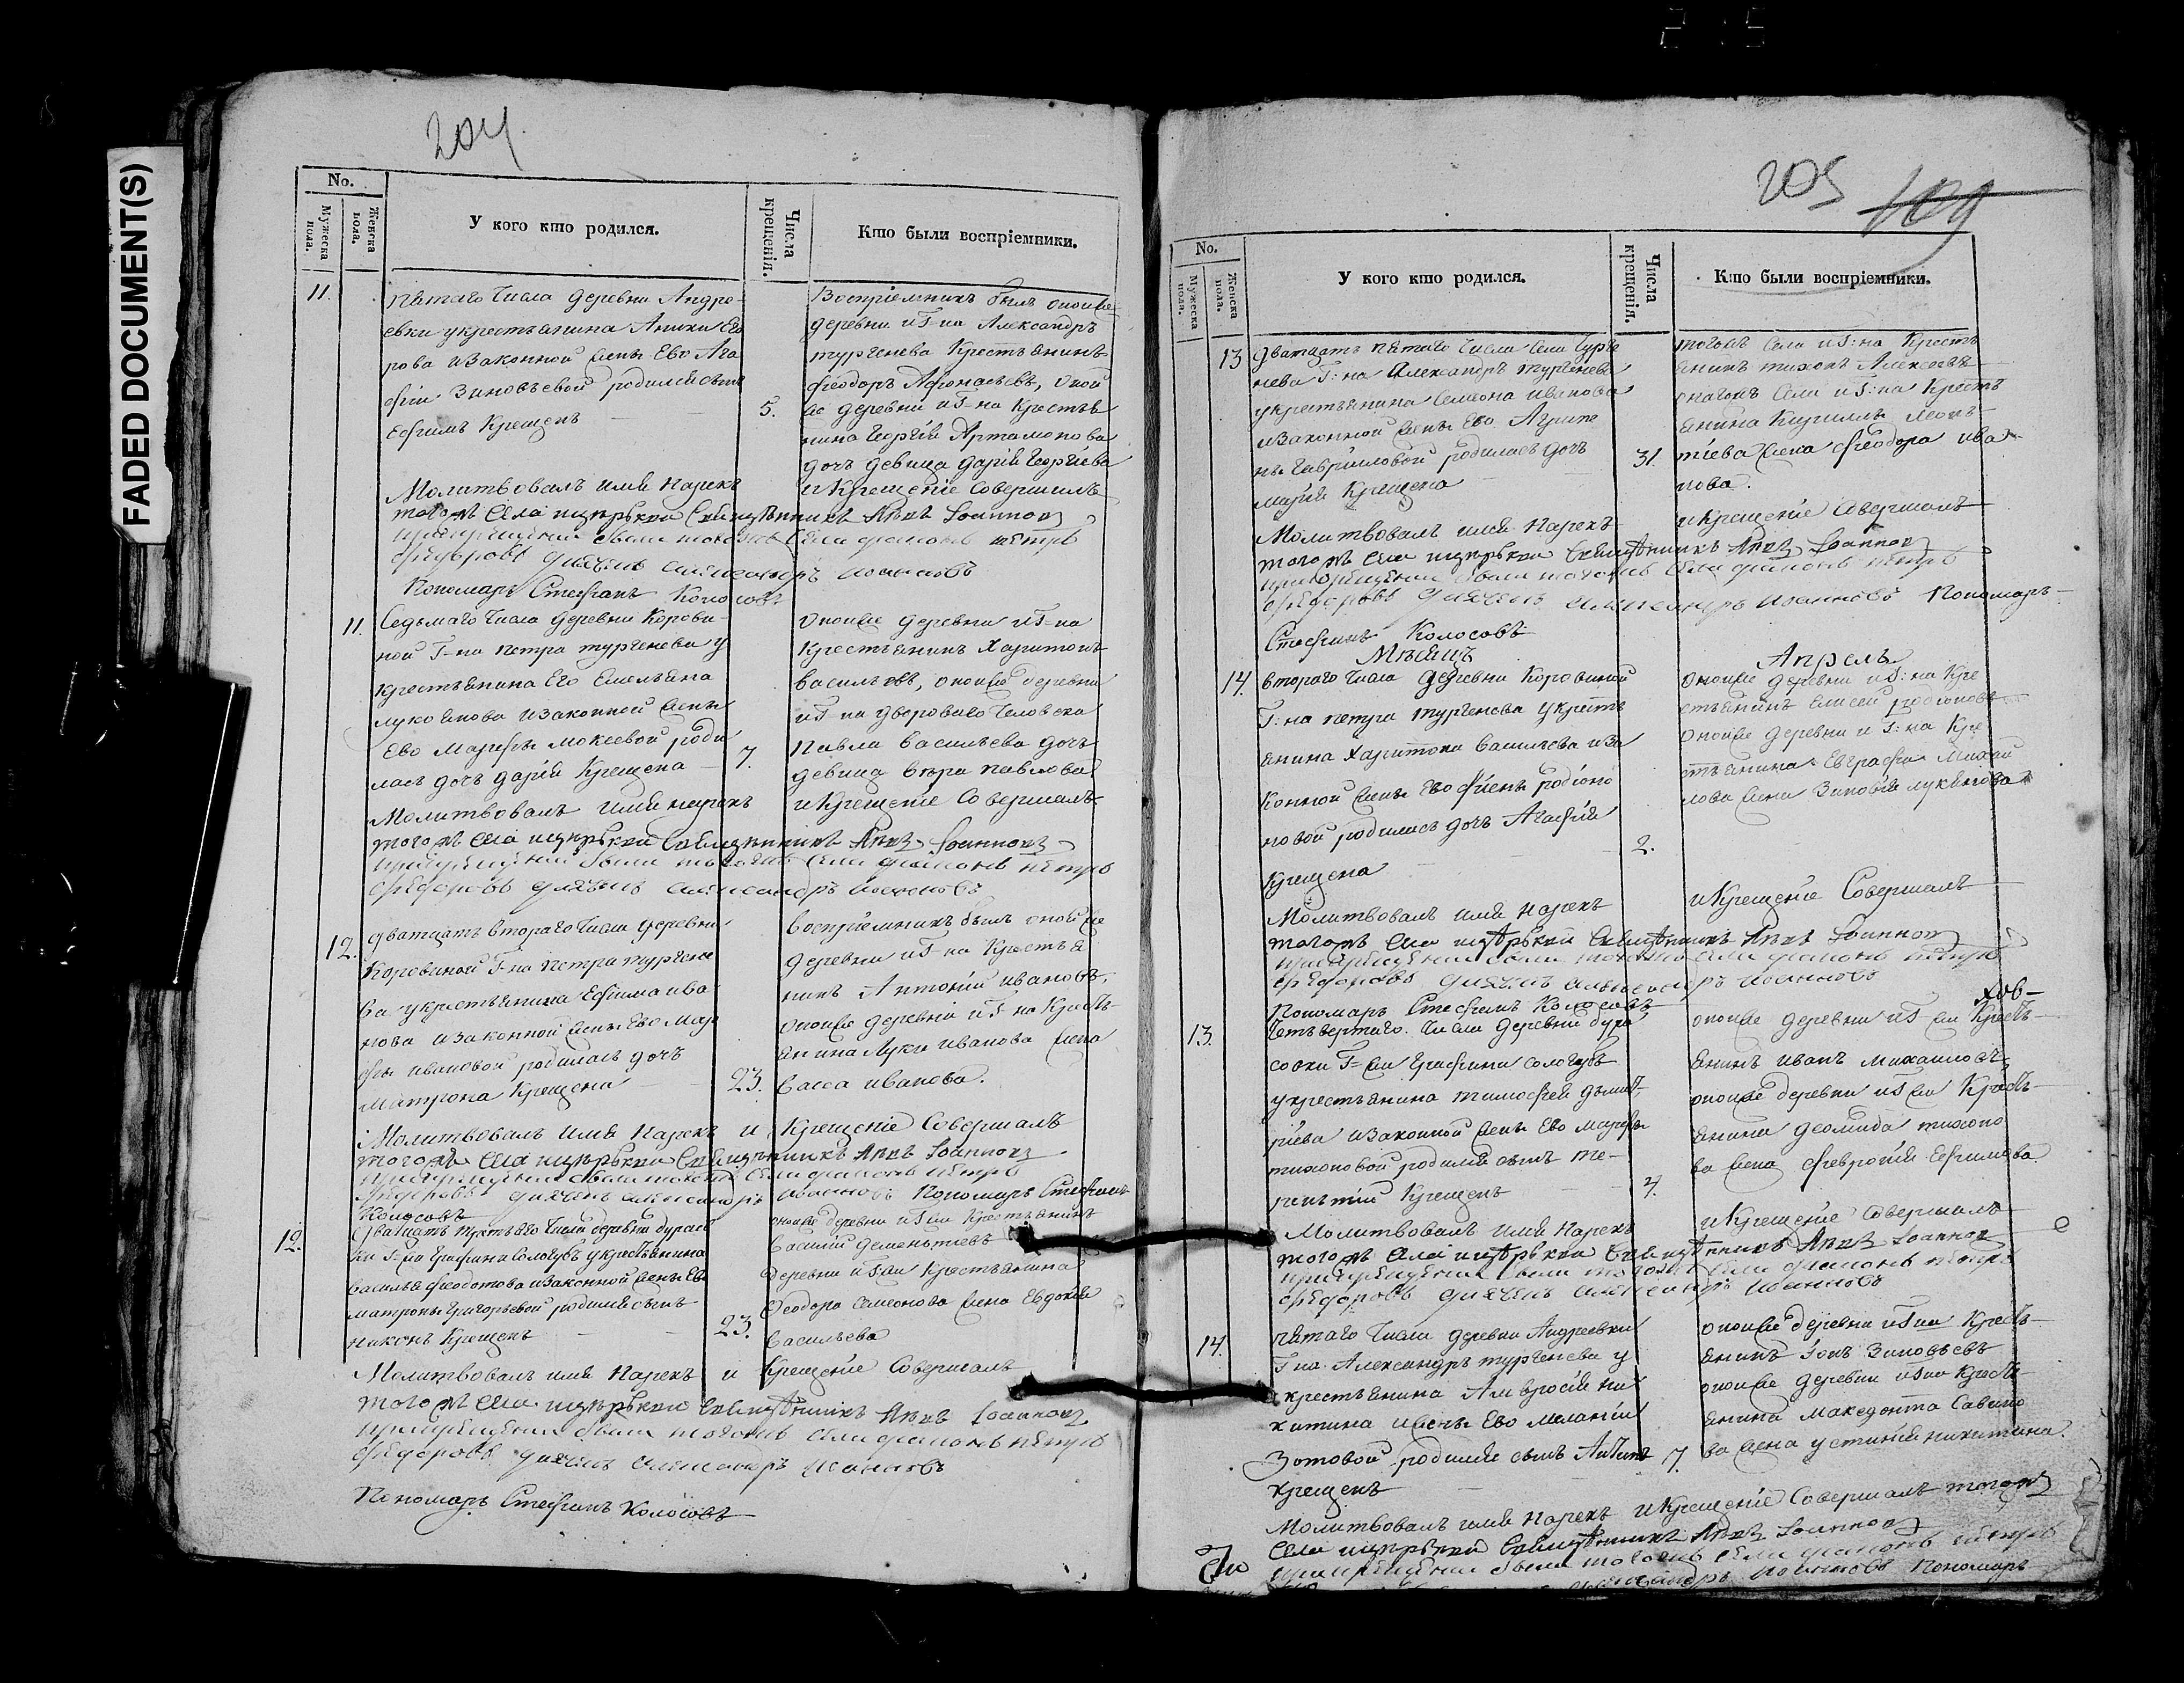 FADED DOCUMENT(S)
204
No.
Мужеска пола.
Женска пола.
У кого кто родился.
Числа крещенія.
Кто были воспріемники.
11.
Пятаго Числа деревни Андре-
евки у крестьянина Аники Его
рова и Законной жены Ево Ага
фіи Зиновьевой родился сынъ
Ефимъ Крещенъ
5.
Воспріемникъ былъ оной же
деревни и Г-на Александръ
тургенева Крестьянинъ
феодоръ Афонасьевъ, оной
же деревни и Г-на Крестья
нина Георгія Артамонова
дочь девица дарія Георгіева
Молитвовалъ имя нарекъ
и Крещеніе Совершилъ
тогожъ села церькви Священникъ Іоанновъ
при крещеніи были тогожъ села діаконъ петръ
федоровъ дьячекъ александръ иоанновъ
Пономарь Стефанъ Колосовъ
11.
Седьмаго Числа деревни Корови-
ной Г-на петра тургенева у
крестьянина Его Емельяна
лукоянова и законной жены
Ево Марфы мокеевой роди
лась дочь дарія Крещена
7.
оной же деревни и Г-на
Крестьянинъ Харитонъ
васильевъ, оной же деревни
и Г-на двороваго Человека
Павла васильева дочь
девица вера павлова
Молитвовалъ имя нарекъ
и Крещеніе Совершалъ
тогожъ села церькви Священникъ Іоанновъ
при крещеніи были тогожъ села діаконъ петръ
федоровъ дьячекъ александръ иоанновъ
12.
дватцать втораго Числа деревни
Коровиной Г-на петра тургене
ва у крестьянина Ефима ива
нова и законной жены Ево Мар
фы ивановой родилась дочь
матрона Крещена
23.
воспріемникъ былъ оной же
деревни и Г-на Крестья
нинъ Антоній ивановъ,
оной же деревни и Г-на Кресть
янина Луки иванова жена
васса иванова.
Молитвовалъ имя нарекъ и Крещеніе Совершалъ
тогожъ села церькви Священникъ Іоанновъ
при крещеніи были тогожъ села діаконъ петръ
федоровъ дьячекъ александръ иоанновъ Пономарь Стефанъ
Колосовъ
12.
дватцать третьяго Числа деревни дурасов
ки Г-жи Графини Сологубъ у крестьянина
василья федотова и законной жены Ево
матроны григорьевой родился сынъ
никонъ Крещенъ
23.
оной же деревни и Г-жи Крестьянинъ
василій дементьевъ
деревни и Г-жи Крестьянина
Феодора семенова жена Евдокія
васильева
Молитвовалъ имя нарекъ и Крещеніе Совершалъ
тогожъ села церькви священникъ Іоанновъ
при крещеніи были тогожъ села діаконъ петръ
федоровъ дьячекъ александръ иоанновъ
Пономарь Стефанъ Колосовъ
205
109
No.
Мужеска пола.
Женска пола.
У кого кто родился.
Числа крещенія.
Кто были воспріемники.
13
дватцать пятаго Числа Села турге
нева Г:на Александръ тургенева
у крестьянина Семена иванова
и Законной жены Ево Агрипе
ны Гавриловой родилась дочь
марія Крещена
31.
тогожъ Села и Г:на Кресть
янинъ тихонъ Алексеевъ
онагожъ Села и Г:на Кресть
янина Кирилла леонь-
тіева жена феодора ива
нова.
Молитвовалъ имя нарекъ
и Крещеніе Совершалъ
тогожъ села церькви священникъ Іоанновъ
при крещеніи были тогожъ села діаконъ петръ
федоровъ дьячекъ александръ иоанновъ Пономарь
Стефанъ Колосовъ
Месяцъ Апрель
14.
втораго Числа деревни Коровиной
Г:на петра тургенева у кресть
янина Харитона васильева и за
конной жены Ево фіены родіоно
новой родилась дочь Агафія
Крещена
2.
оной же деревни и Г:на Кре
стьянинъ Елисей родіоновъ
оной же деревни и Г:на Кре
стьянина Евграфа Михай
лова жена Зиновія лукьянова
Молитвовалъ имя нарекъ
и Крещеніе Совершалъ
тогожъ села церькви священникъ Іоанновъ
при крещеніи были тогожъ села діаконъ петръ
федоровъ дьячекъ александръ иоанновъ
Пономарь Стефанъ Колосовъ
13.
Четьвертаго Числа деревни дура
совки Г-жи Графини сологубъ
у крестьянина тимофея дьмит-
ріева и законной жены Ево марфы
тихоновой родился сынъ те-
рентій Крещенъ
4.
оной же деревни и Г-жи Кресть-
янинъ иванъ михаиловъ,
оной же деревни и Г-жи Кресть-
янина деомида тихоно
ва жена февронія Ефимова.
Молитвовалъ имя нарекъ
и Крещеніе Совершалъ
тогожъ села церькви священникъ Іоанновъ
при крещеніи были тогожъ села діаконъ петръ
федоровъ дьячекъ александръ иоанновъ
14.
пятаго Числа деревни Андреевки
Г-на Александръ тургенева у
крестьянина Амвросія ни
китина и жены Ево меланіи
Зотовой родился сынъ Антипъ
крещенъ
7.
оной же деревни и Г-на Кресть-
янинъ Іонъ Зиновьевъ
оной же деревни и Г-на Кресть-
янина Македонта Савино
ва жена устинія никитина.
Молитвовалъ имя нарекъ и Крещеніе Совершалъ тогожъ
села церькви священникъ Іоанновъ
при крещеніи были тогожъ села діаконъ петръ
иоанновъ Пономарь